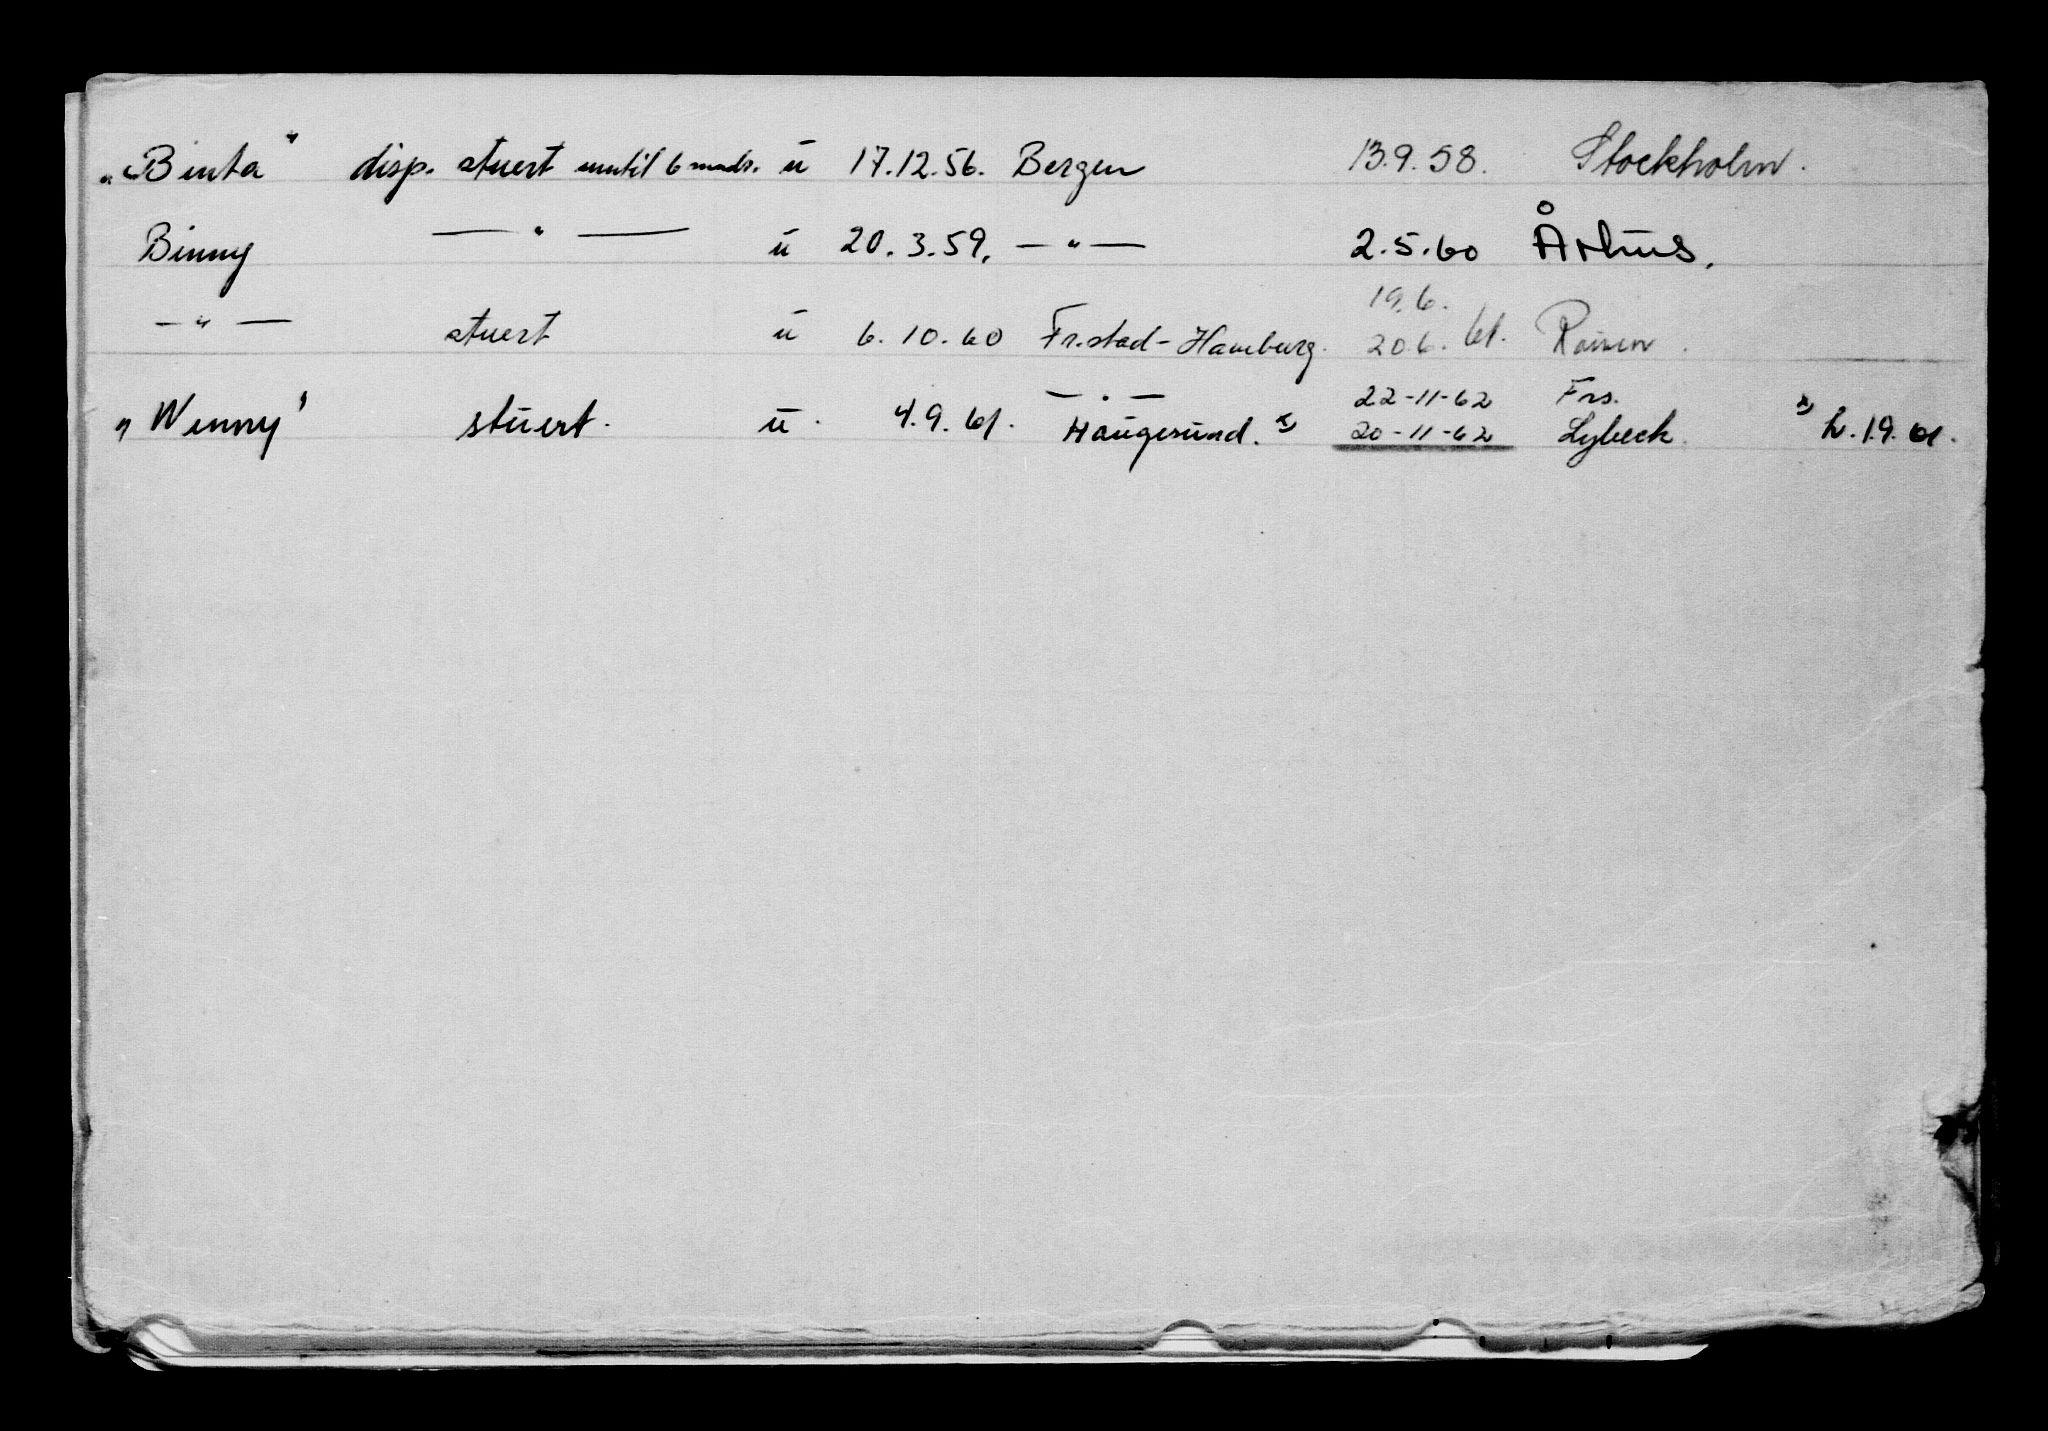 „Binta" disp. stuert inntil 6 mndr. u 17.12.56. Bergen 13.9.58. Stockholm.
Binny — " — u 20.3.59. — " — 2.5.60 Århus.
— " — stuert u 6.10.60 Fr.stad-Hamburg. 19.6. 20.6. 61.
„Winny" stuert. u. 4.9.61. — " — Haugesund. x) 22-11-62 Frs. x) h. 1.9.61.
20-11-62 Lybeck.